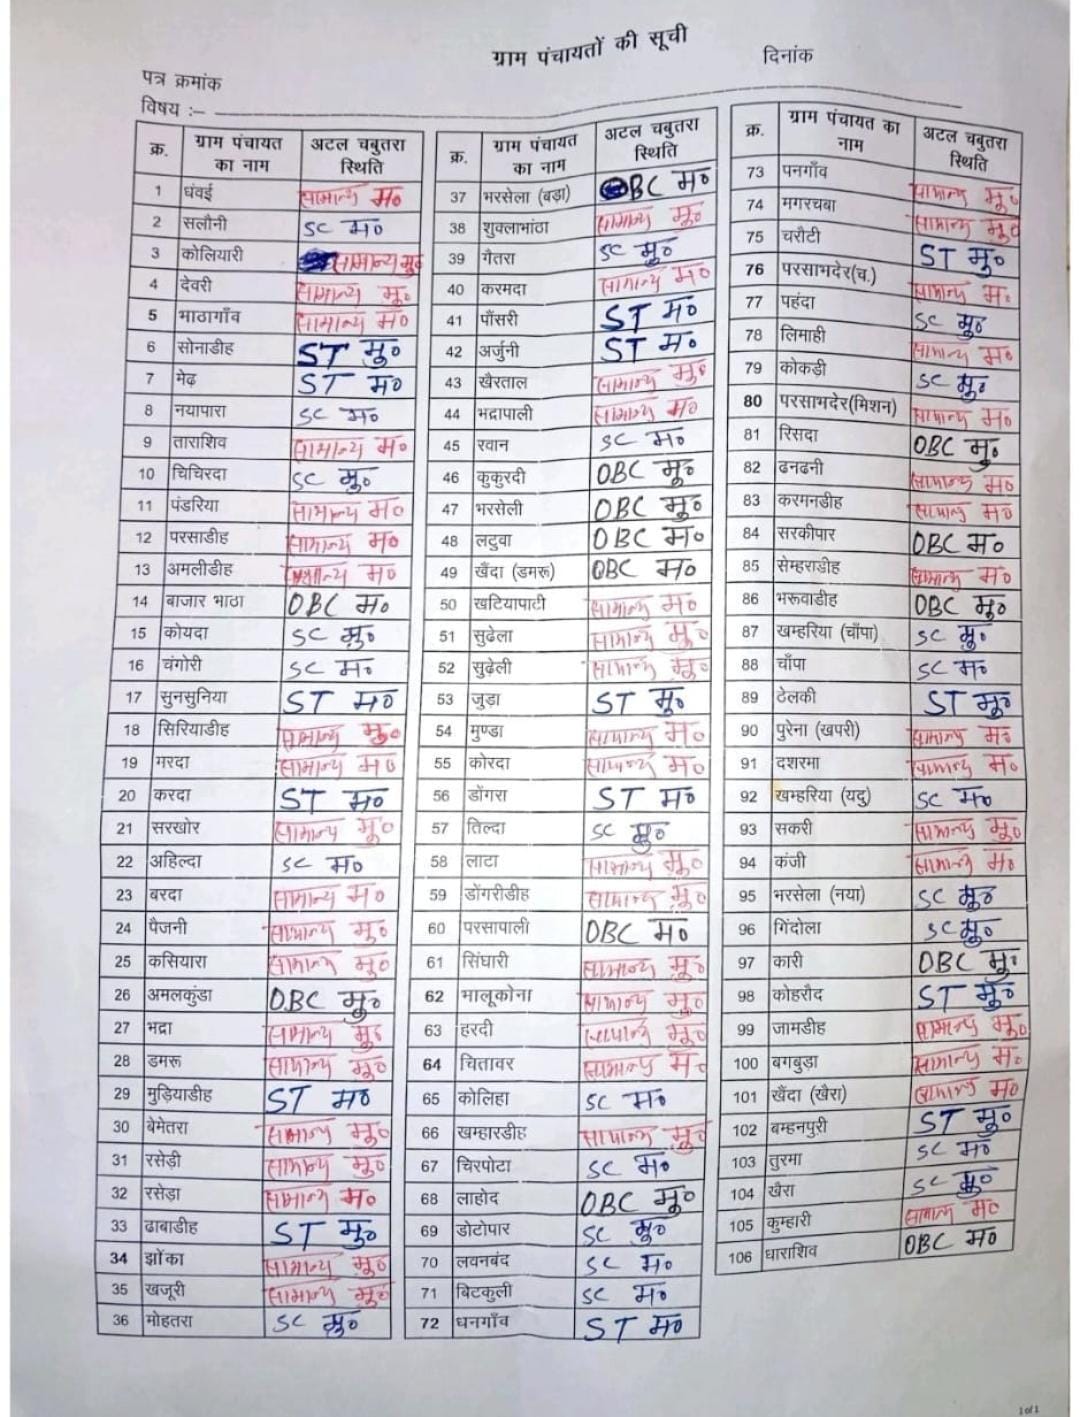 ग्राम पंचायतों की सूची
पत्र क्रमांक
दिनांक
विषय :–
क्र. ग्राम पंचायत का नाम अटल चबुतरा स्थिति
1 धंवई सामान्य म०
2 सलौनी SC म०
3 कोलियारी सामान्य मु०
4 देवरी सामान्य मु०
5 भाठागाँव सामान्य म०
6 सोनाडीह ST मु०
7 मेढ़ ST म०
8 नयापारा SC म०
9 ताराशिव सामान्य म०
10 चिचिरदा SC मु०
11 पंडरिया सामान्य म०
12 परसाडीह सामान्य म०
13 अमलीडीह सामान्य म०
14 बाजार भाठा OBC म०
15 कोयदा SC मु०
16 चंगोरी SC म०
17 सुनसुनिया ST म०
18 सिरियाडीह सामान्य मु०
19 मरदा सामान्य म०
20 करदा ST म०
21 सरखोर सामान्य मु०
22 अहिल्दा SC म०
23 बरदा सामान्य म०
24 पैजनी सामान्य मु०
25 कसियारा सामान्य मु०
26 अमलकुंडा OBC मु०
27 भद्रा सामान्य मु०
28 डमरू सामान्य मु०
29 मुड़ियाडीह ST म०
30 बेमेतरा सामान्य मु०
31 रसेड़ी सामान्य मु०
32 रसेड़ा सामान्य म०
33 ढाबाडीह ST मु०
34 झोंका सामान्य मु०
35 खजूरी सामान्य मु०
36 मोहतरा SC मु०
क्र. ग्राम पंचायत का नाम अटल चबुतरा स्थिति
37 भरसेला (बड़ा) OBC म०
38 शुक्लाभांठा सामान्य मु०
39 गैतरा SC मु०
40 करमदा सामान्य म०
41 पौंसरी ST म०
42 अर्जुनी ST म०
43 खैरताल सामान्य मु०
44 भद्रापाली सामान्य म०
45 रवान SC म०
46 कुकुरदी OBC मु०
47 भरसेली OBC मु०
48 लटुवा OBC म०
49 खैंदा (डमरू) OBC म०
50 खटियापाटी सामान्य म०
51 सुढेला सामान्य मु०
52 सुढेली सामान्य मु०
53 जुड़ा ST मु०
54 मुण्डा सामान्य म०
55 कोरदा सामान्य म०
56 डोंगरा ST म०
57 तिल्दा SC मु०
58 लाटा सामान्य मु०
59 डोंगरीडीह सामान्य मु०
60 परसापाली OBC म०
61 सिंघारी सामान्य मु०
62 भालूकोना सामान्य मु०
63 हरदी सामान्य मु०
64 चितावर सामान्य म०
65 कोलिहा SC म०
66 खम्हारडीह सामान्य मु०
67 चिरपोटा SC म०
68 लाहोद OBC मु०
69 डोटोपार SC मु०
70 लवनबंद SC म०
71 बिटकुली SC म०
72 धनगाँव ST म०
क्र. ग्राम पंचायत का नाम अटल चबुतरा स्थिति
73 पनगाँव सामान्य मु०
74 मगरचबा सामान्य मु०
75 चरौटी ST मु०
76 परसाभदेर(च.) सामान्य म०
77 पहंदा SC मु०
78 लिमाही सामान्य म०
79 कोकड़ी SC मु०
80 परसाभदेर(मिशन) सामान्य म०
81 रिसदा OBC मु०
82 ढनढनी सामान्य म०
83 करमनडीह सामान्य म०
84 सरकीपार OBC म०
85 सेम्हराडीह सामान्य म०
86 भरूवाडीह OBC मु०
87 खम्हरिया (चाँपा) SC मु०
88 चाँपा SC म०
89 ठेलकी ST मु०
90 पुरेना (खपरी) सामान्य म०
91 दशरमा सामान्य म०
92 खम्हरिया (यदु) SC म०
93 सकरी सामान्य मु०
94 कंजी सामान्य म०
95 भरसेला (नया) SC मु०
96 गिंदोला SC मु०
97 कारी OBC मु०
98 कोहरौद ST मु०
99 जामडीह सामान्य मु०
100 बगबुड़ा सामान्य म०
101 खैंदा (खैरा) सामान्य म०
102 बम्हनपुरी ST मु०
103 तुरमा SC म०
104 खैरा SC मु०
105 कुम्हारी सामान्य म०
106 धाराशिव OBC म०
1 of 1